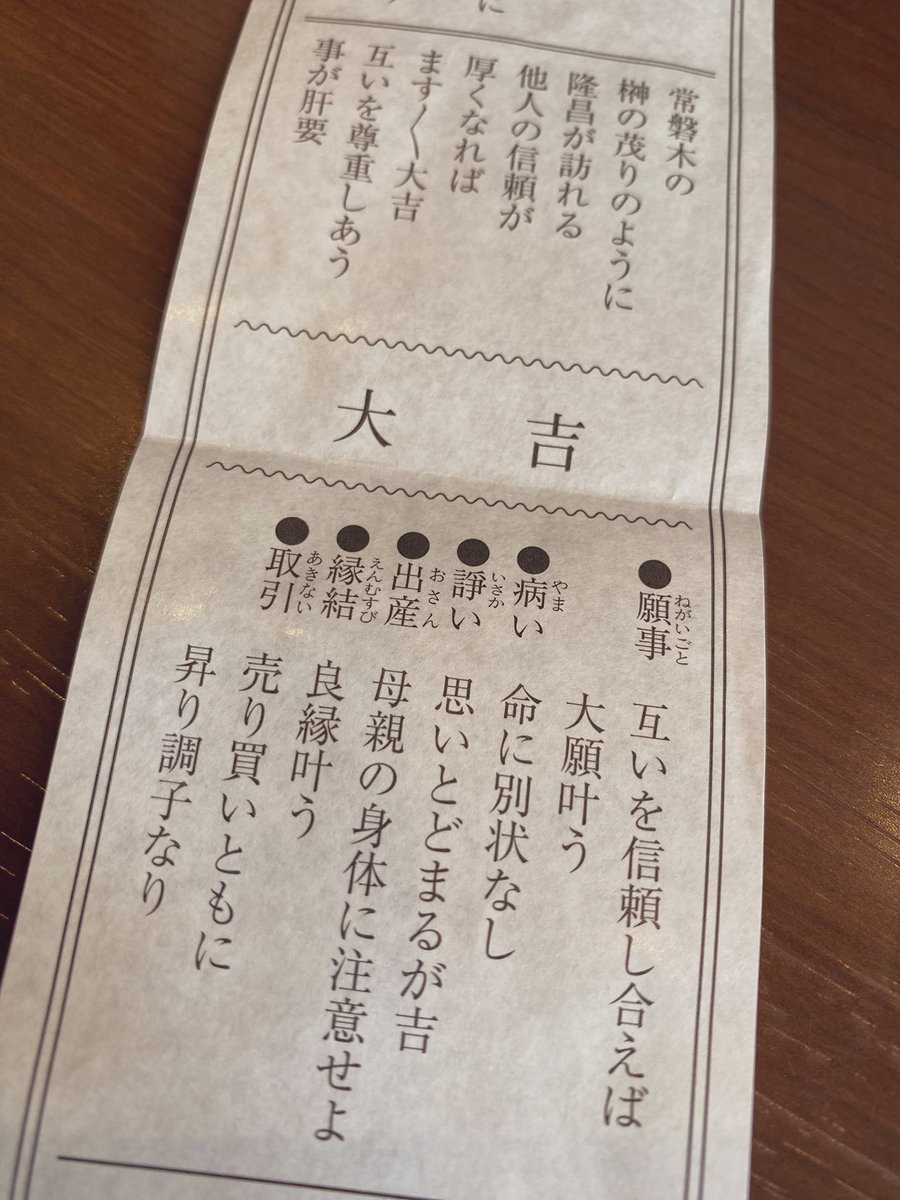 に
常磐木の
榊の茂りのように
隆昌が訪れる
他人の信頼が
厚くなれば
ます〳〵大吉
互いを尊重しあう
事が肝要
大吉
ねがいごと
●願事 互いを信頼し合えば
大願叶う
やま
●病い 命に別状なし
いさか
●諍い 思いとどまるが吉
おさん
●出産 母親の身体に注意せよ
えんむすび
●縁結 良縁叶う
あきない
●取引 売り買いともに
昇り調子なり